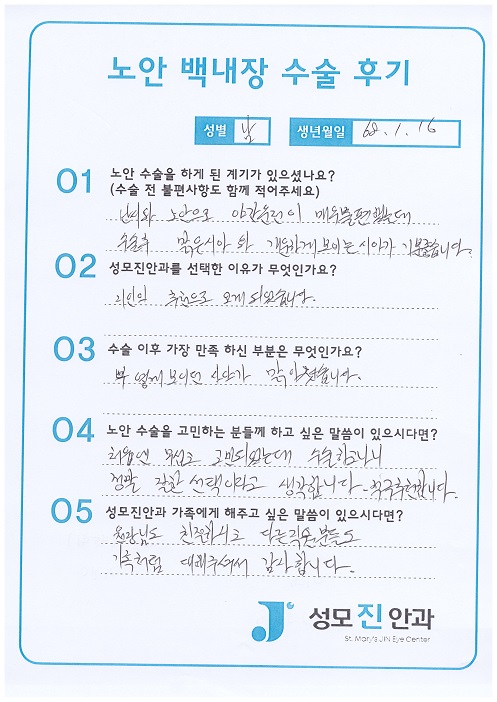 노안 백내장 수술 후기
성별 남 생년월일 60. 1. 16
01 노안 수술을 하게 된 계기가 있으셨나요?
(수술 전 불편사항도 함께 적어주세요)
난시와 노안으로 야간운전이 매우불편했는데
수술후 맑은시야 와 개운하게 보이는 시야가 기분좋습니다.
02 성모진안과를 선택한 이유가 무엇인가요?
지인의 추천으로 오게되었습니다.
03 수술 이후 가장 만족 하신 부분은 무엇인가요?
뿌옇게 보이던 시야가 맑아졌습니다.
04 노안 수술을 고민하는 분들께 하고 싶은 말씀이 있으시다면?
처음엔 무섭고 고민되었는데 수술하고나니
정말 잘한 선택이라고 생각합니다. 적극추천합니다.
05 성모진안과 가족에게 해주고 싶은 말씀이 있으시다면?
원장님도 친절하시고 다른직원분들도
가족처럼 대해주셔서 감사합니다.
성모 진 안과
St. Mary's JIN Eye Center